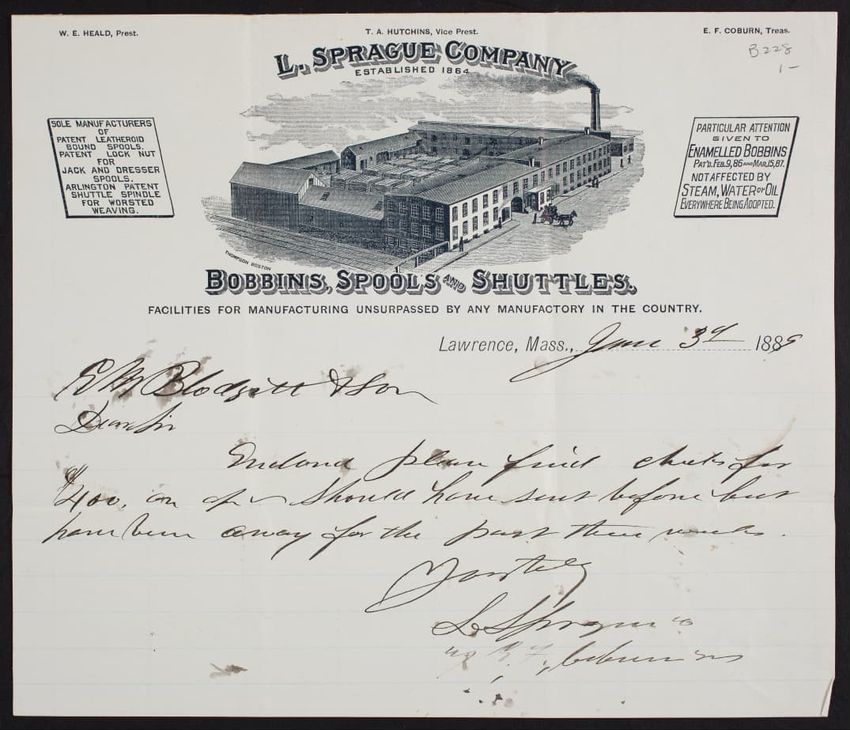 W. E. HEALD, Prest.
T. A. HUTCHINS, Vice Prest.
E. F. COBURN, Treas.
B228
1-
L. SPRAGUE COMPANY
ESTABLISHED 1864
SOLE MANUFACTURERS
OF
PATENT LEATHEROID
BOUND SPOOLS.
PATENT LOCK NUT
FOR
JACK AND DRESSER
SPOOLS.
ARLINGTON PATENT
SHUTTLE SPINDLE
FOR WORSTED
WEAVING.
PARTICULAR ATTENTION
GIVEN TO
ENAMELLED BOBBINS
PAT'D. FEB. 9, 86 AND MAR. 15, 87.
NOT AFFECTED BY
STEAM, WATER OR OIL
EVERYWHERE BEING ADOPTED.
THOMPSON BOSTON
BOBBINS, SPOOLS AND SHUTTLES.
FACILITIES FOR MANUFACTURING UNSURPASSED BY ANY MANUFACTORY IN THE COUNTRY.
Lawrence, Mass., June 3d 1889
Blodgett & Son
Dear Sir
Enclosed please find check for
$400. on a/c Should have sent before but
have been away for the past three weeks.
Yours truly
L Sprague Co
Coburn